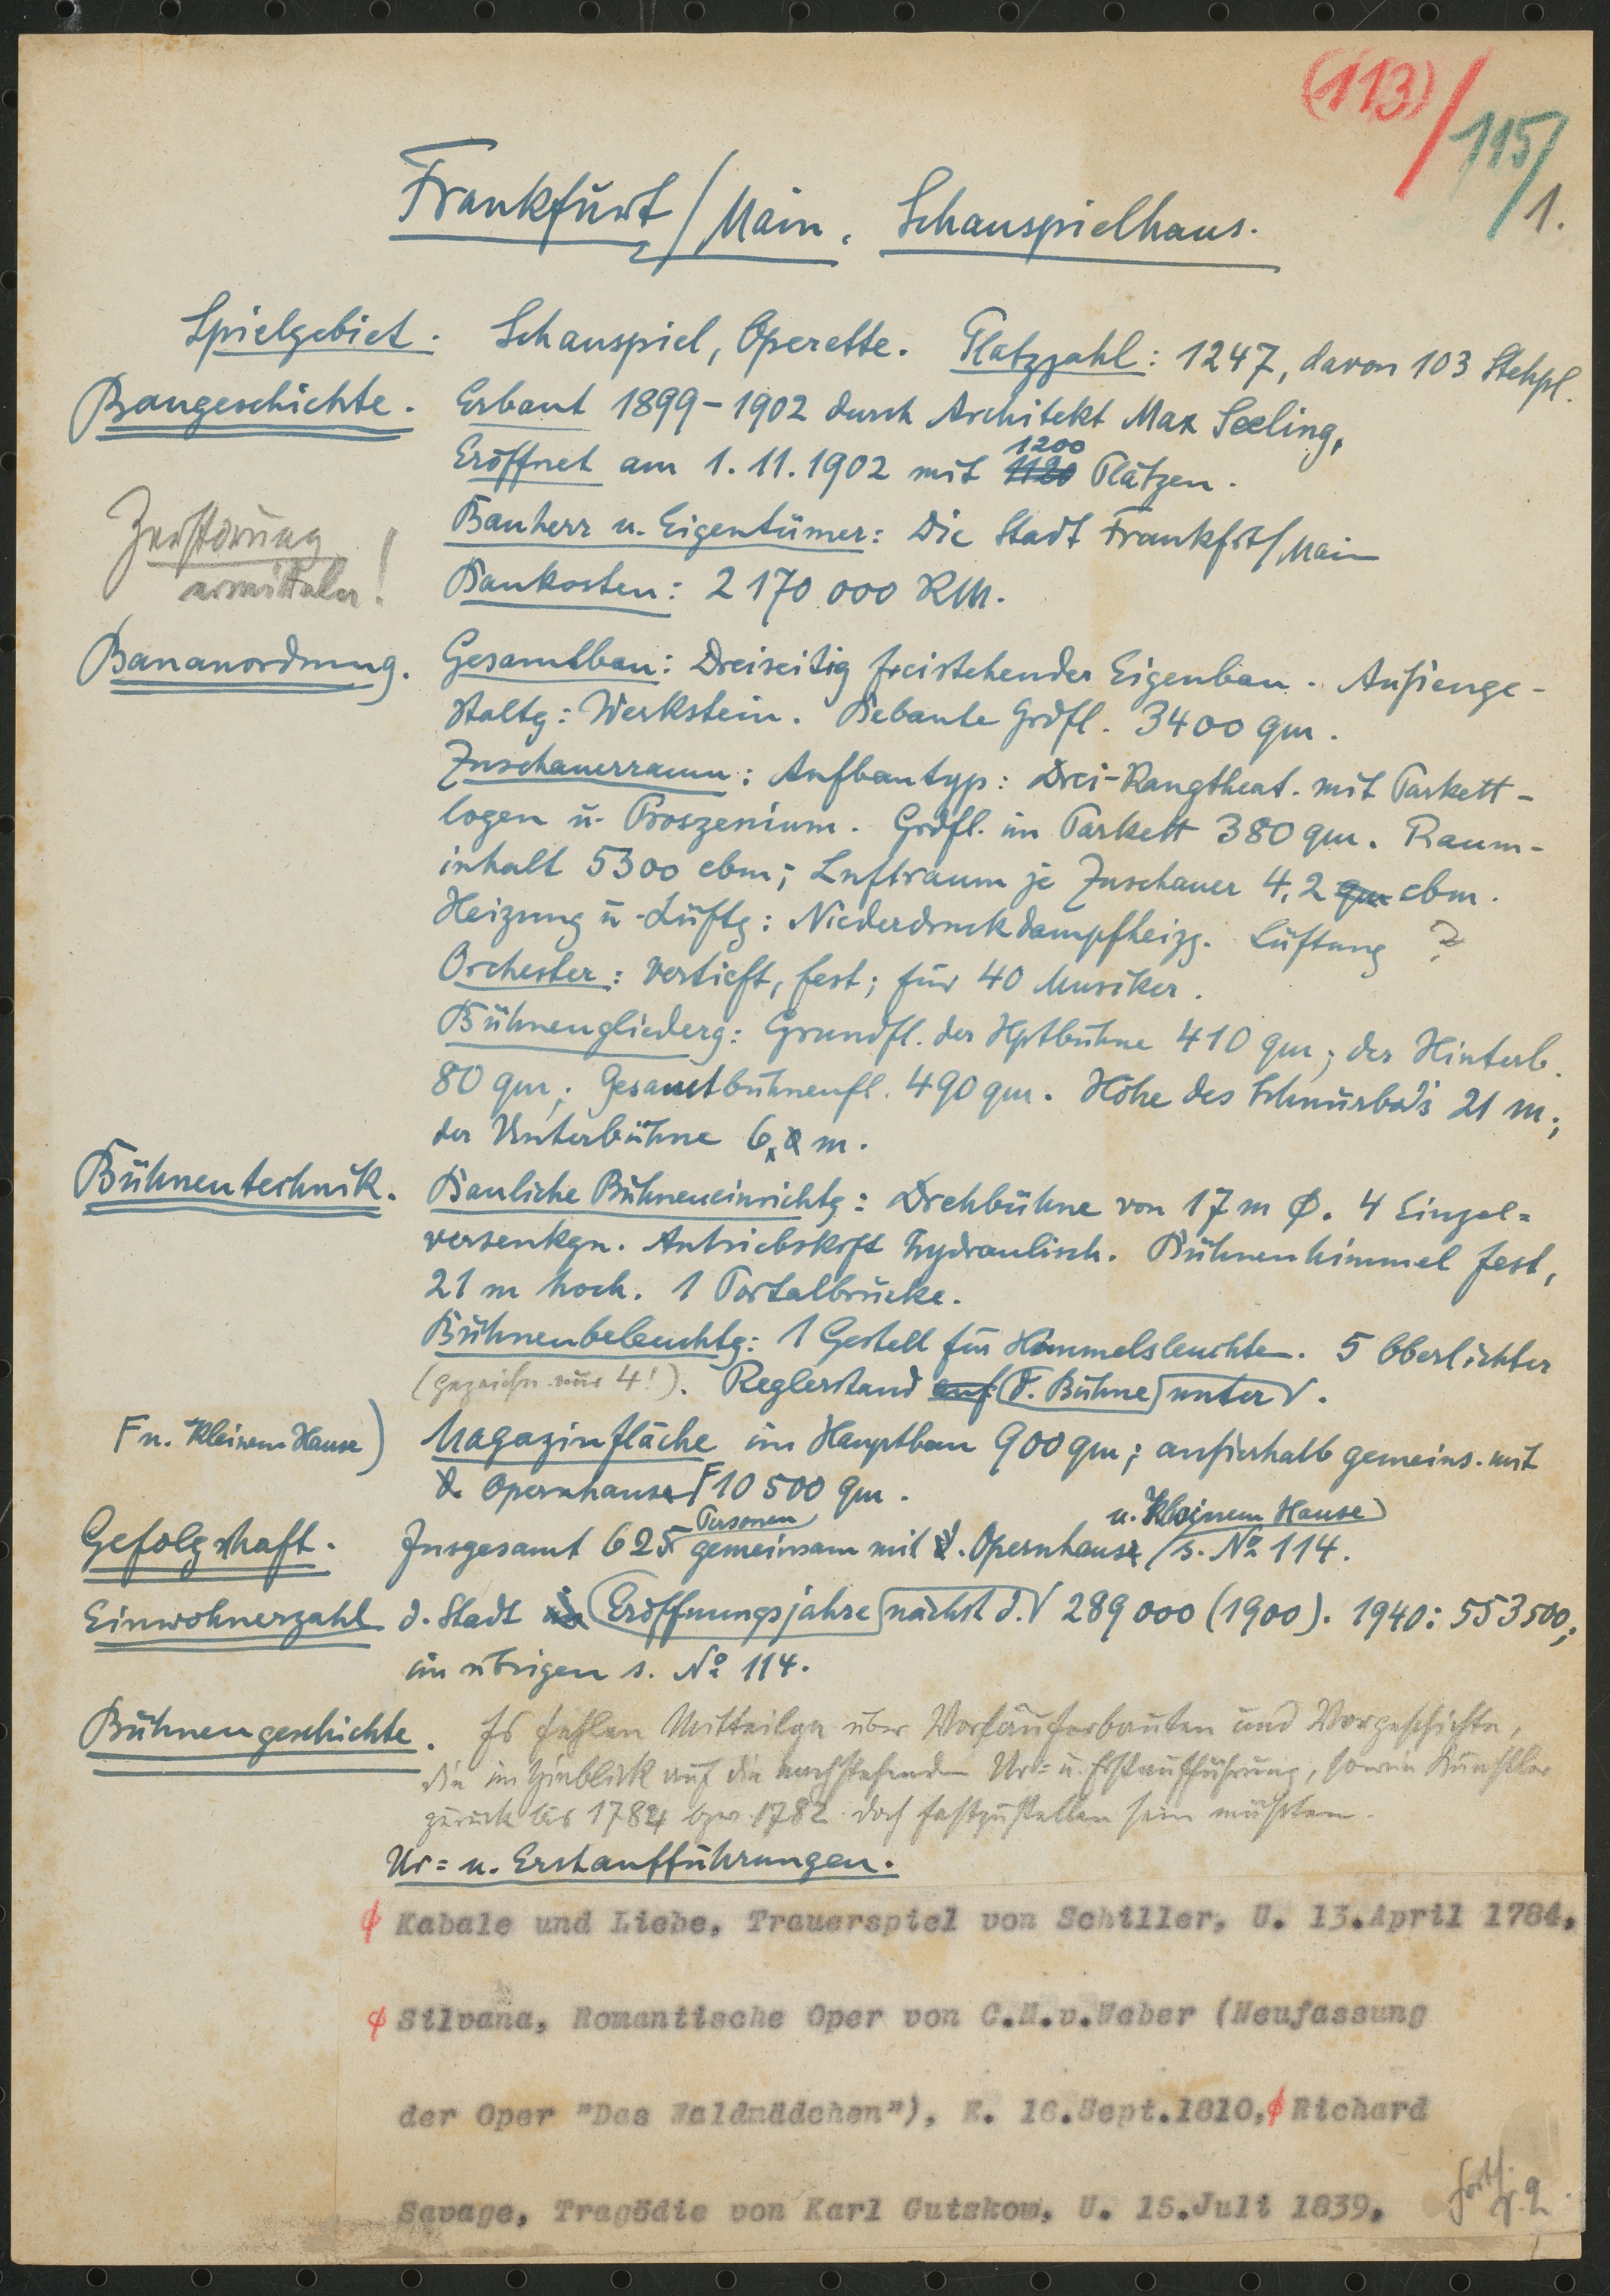 (113)/
115/
1.
Frankfurt/Main. Schauspielhaus.
Spielgebiet. Schauspiel, Operette. Platzzahl: 1247, davon 103 Stehpl.
Baugeschichte. Erbaut 1899-1902 durch Architekt Max Seeling,
1200
Eröffnet am 1.11.1902 mit 1120 Plätzen.
Bauherr u. Eigentümer: Die Stadt Frankfrt/Main
Zerstörung
ermitteln!
Baukosten: 2 170 000 RM.
Bauanordnung. Gesamtbau: Dreiseitig freistehender Eigenbau. Außenge-
staltg: Werkstein. Bebaute Grdfl. 3400 qm.
Zuschauerraum: Aufbautyp: Drei-Rangtheat. mit Parkett-
logen u. Proszenium. Grdfl. im Parkett 380 qm. Raum-
inhalt 5300 cbm; Luftraum je Zuschauer 4,2 qm cbm.
Heizung u. Lüftg: Niederdruckdampfheizg. Lüftung ?
Orchester: vertieft, fest; für 40 Musiker.
Bühnengliederg: Grundfl. der Hptbühne 410 qm; der Hinterb.
80 qm; Gesamtbühnenfl. 490 qm. Höhe des Schnürbd's 21 m;
der Unterbühne 6 m.
Bühnentechnik. Bauliche Bühneneinrichtg: Drehbühne von 17 m Ø. 4 Einzel=
versenkgn. Antriebskrft hydraulisch. Bühnenhimmel fest,
21 m hoch. 1 Portalbrücke.
Bühnenbeleuchtg: 1 Gestell für Himmelsleuchten. 5 Oberlichter
(gezeichn. nur 4!). Reglerstand auf d. Bühne unter.
F u. Kleinem Hause) Magazinfläche im Hauptbau 900 qm; außerhalb gemeins. mit
d. Opernhause F 10 500 qm.
Personen u. Kleinem Hause
Gefolgschaft. Insgesamt 625 gemeinsam mit d. Opernhause / s. No 114.
Einwohnerzahl d. Stadt im Eröffnungsjahre nächst d. 289 000 (1900). 1940: 553 500;
im übrigen s. No 114.
Bühnengeschichte. Es fehlen Mitteilgn über Vorläuferbauten und Vorgeschichte,
die im Hinblick auf die nachstehenden Ur= u. Erstaufführung, sowie Künstler
zurück bis 1784 bzw. 1782 doch festzustellen sein müßten.
Ur= u. Erstaufführungen.
Kabale und Liebe, Trauerspiel von Schiller, U. 13.April 1784,
Silvana, Romantische Oper von C.M.v.Weber (Neufassung
der Oper "Das Waldmädchen"), E. 16.Sept.1810, Richard
Savage, Tragödie von Karl Gutzkow, U. 15.Juli 1839,
Forts. S. 2.